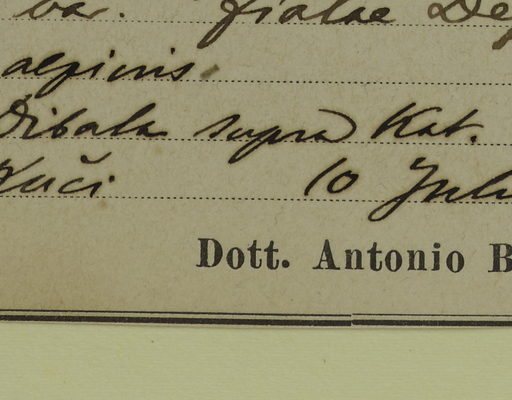 var. fialae De
alpinis
Sibala supra Kat.
Kuči 10 Juli
Dott. Antonio B